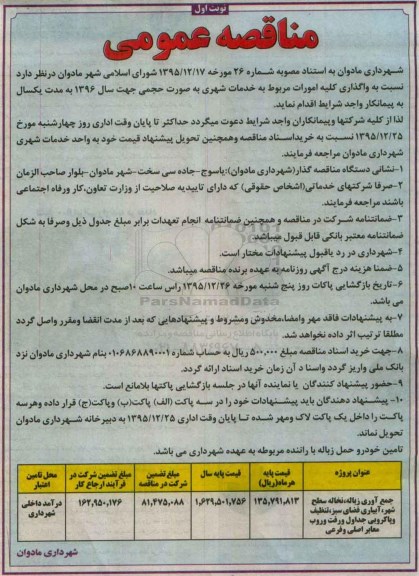 نوبت اول
مناقصه عمومی
شهرداری مادوان به استناد مصوبه شماره ۲۶ مورخه ۱۳۹۵/۱۲/۱۷ شورای اسلامی شهر مادوان درنظر دارد
نسبت به واگذاری کلیه امورات مربوط به خدمات شهری به صورت حجمی جهت سال ۱۳۹۶ به مدت یکسال
به پیمانکار واجد شرایط اقدام نماید.
لذا از کلیه شرکتها وپیمانکاران واجد شرایط دعوت میگردد حداکثر تا پایان وقت اداری روز چهارشنبه مورخ
۱۳۹۵/۱۲/۲۵ نسبت به خریداسناد مناقصه وهمچنین تحویل پیشنهاد قیمت خود به واحد خدمات شهری
شهرداری مادوان مراجعه فرمایند.
۱-نشانی دستگاه مناقصه گذار(شهرداری مادوان):یاسوج-جاده سی سخت-شهر مادوان-بلوار صاحب الزمان
۲-صرفا شرکتهای خدماتی(اشخاص حقوقی) که دارای تاییدیه صلاحیت از وزارت تعاون،کار ورفاه اجتماعی
باشند مراجعه فرمایند.
۳-ضمانتنامه شرکت در مناقصه و همچنین ضمانتنامه انجام تعهدات برابر مبلغ جدول ذیل وصرفا به شکل
ضمانتنامه معتبر بانکی قابل قبول میباشد.
۴-شهرداری در رد یاقبول پیشنهادات مختار است.
۵-ضمنا هزینه درج آگهی روزنامه به عهده برنده مناقصه میباشد.
۶-تاریخ بازگشایی پاکات روز پنج شنبه مورخه ۱۳۹۵/۱۲/۲۶ راس ساعت ۱۰صبح در محل شهرداری مادوان
می باشد.
۷-به پیشنهادات فاقد مهر وامضاء،مخدوش ومشروط و پیشنهادهایی که بعد از مدت انقضا ومقرر واصل گردد
مطلقا ترتیب اثر داده نخواهد شد.
۸-جهت خرید اسناد مناقصه مبلغ ۵۰۰،۰۰۰ ریال به حساب شماره ۰۱۰۶۸۶۸۸۹۰۰۰۱ بنام شهرداری مادوان نزد
بانک ملی واریز گردد واسنا د آن زمان خرید اسناد ارائه گردد.
۹-حضور پیشنهاد کنندگان یا نماینده آنها در جلسه بازگشایی پاکتها بلامانع است.
۱۰-پیشنهاد دهندگان باید پیشنهادات خود را در سه پاکت (الف) پاکت(ب) وپاکت(ج) قرار داده وهرسه
پاکت را داخل یک پاکت لاک ومهر شده تا پایان وقت اداری ۱۳۹۵/۱۲/۲۵ به دبیرخانه شهرداری مادوان
تحویل نماند.
تامین خودرو حمل زباله با راننده مربوطه به عهده شهرداری می باشد.
عنوان پروژه قیمت پایه هرماه(ریال) قیمت پایه سال مبلغ تضمین شرکت در مناقصه مبلغ تضمین شرکت در فرآیند ارجاع کار محل تامین اعتبار
جمع آوری زباله،نخاله سطح شهر،آبیاری فضای سبز،تنظیف وپاکروبی جداول ورفت وروب معابر اصلی وفرعی ۱۳۵,۷۹۱,۸۱۳ ۱,۶۲۹,۵۰۱,۷۵۶ ۸۱,۴۷۵,۰۸۸ ۱۶۲,۹۵۰,۱۷۶ درآمد داخلی شهرداری
شهرداری مادوان
ParsNamadData